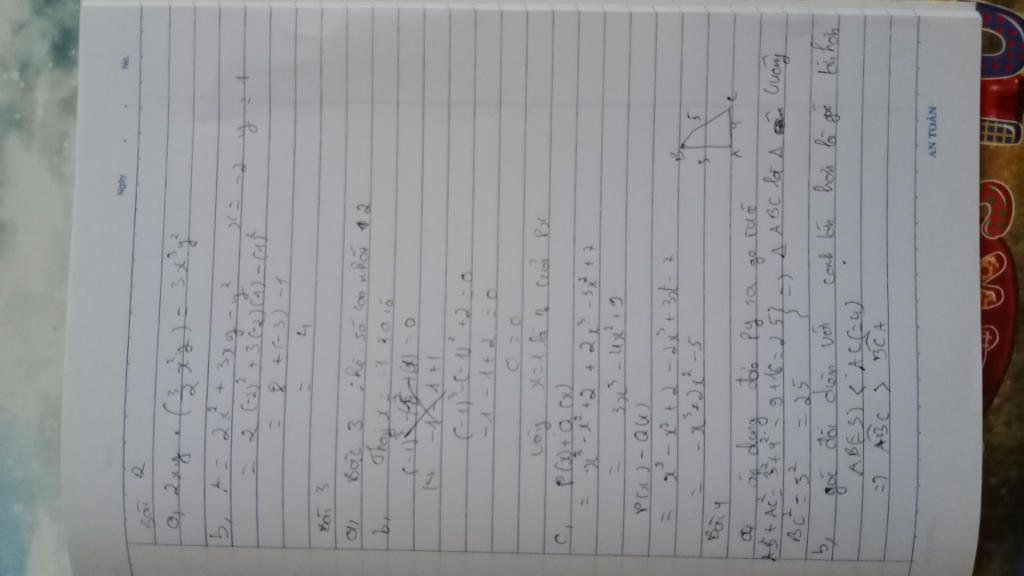 Ngày . . No.
Bài 2
a, 2xy . (3/2 x²y) = 3x³y²
b, A = 2x² + 3xy - y² x = -2 y = 1
= 2(-2)² + 3(-2)(1) - (1)²
= 8 + (-3) - 1
= 4
Bài 3
a, Bậc 3 ; hệ số cao nhất 2
b, Thay x = -1 ta có
-1 - 1 + 1
(-1)³ - (-1)² + 2 = 0
-1 - 1 + 2 = 0
0 = 0
Vậy x = 1 là n₀ của Px
c, P(x) + Q(x)
= x³ - x² + 2 + 2x³ - 3x² + 7
= 3x³ - 4x² + 9
P(x) - Q(x)
= x³ - x² + 2 - 2x³ + 3x² - 7
= -x³ + 2x² - 5
Bài 4
B
5
3
A 4 C
a, áp dụng định Py ta go ta có
AB² + AC² = 3² + 4² = 9 + 16 = 25 } => Δ ABC là Δ vuông
BC² = 5² = 25
b, góc đối diện với cạnh lớn hơn là góc lớn hơn
AB(=3) < AC(=4)
=> ABC > BCA
AN TOÀN